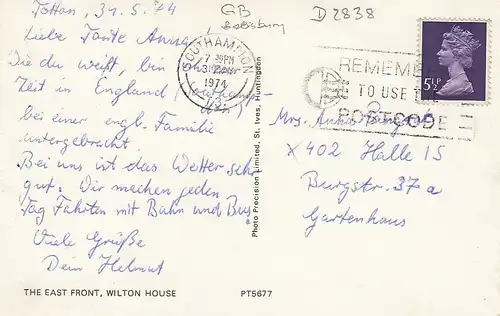 Totton, 31.5.74
Liebe Tante Anna!
Die du weißt, bin
Zeit in England,
bei einer engl. Familie
untergebracht.
Bei uns ist das Wetter sehr
gut. Wir machen jeden
Tag Fahrten mit Bahn und Bus.
Viele Grüße
Dein Helmut
THE EAST FRONT, WILTON HOUSE
PT5677
Photo Precision Limited, St. Ives, Huntingdon
GB
D 2838
SOUTHAMPTON
7 30PM
1974
REMEMBER
TO USE THE
POSTCODE
5½P
Mrs. Anna
X 402 Halle 15
Burgstr. 37a
Gartenhaus